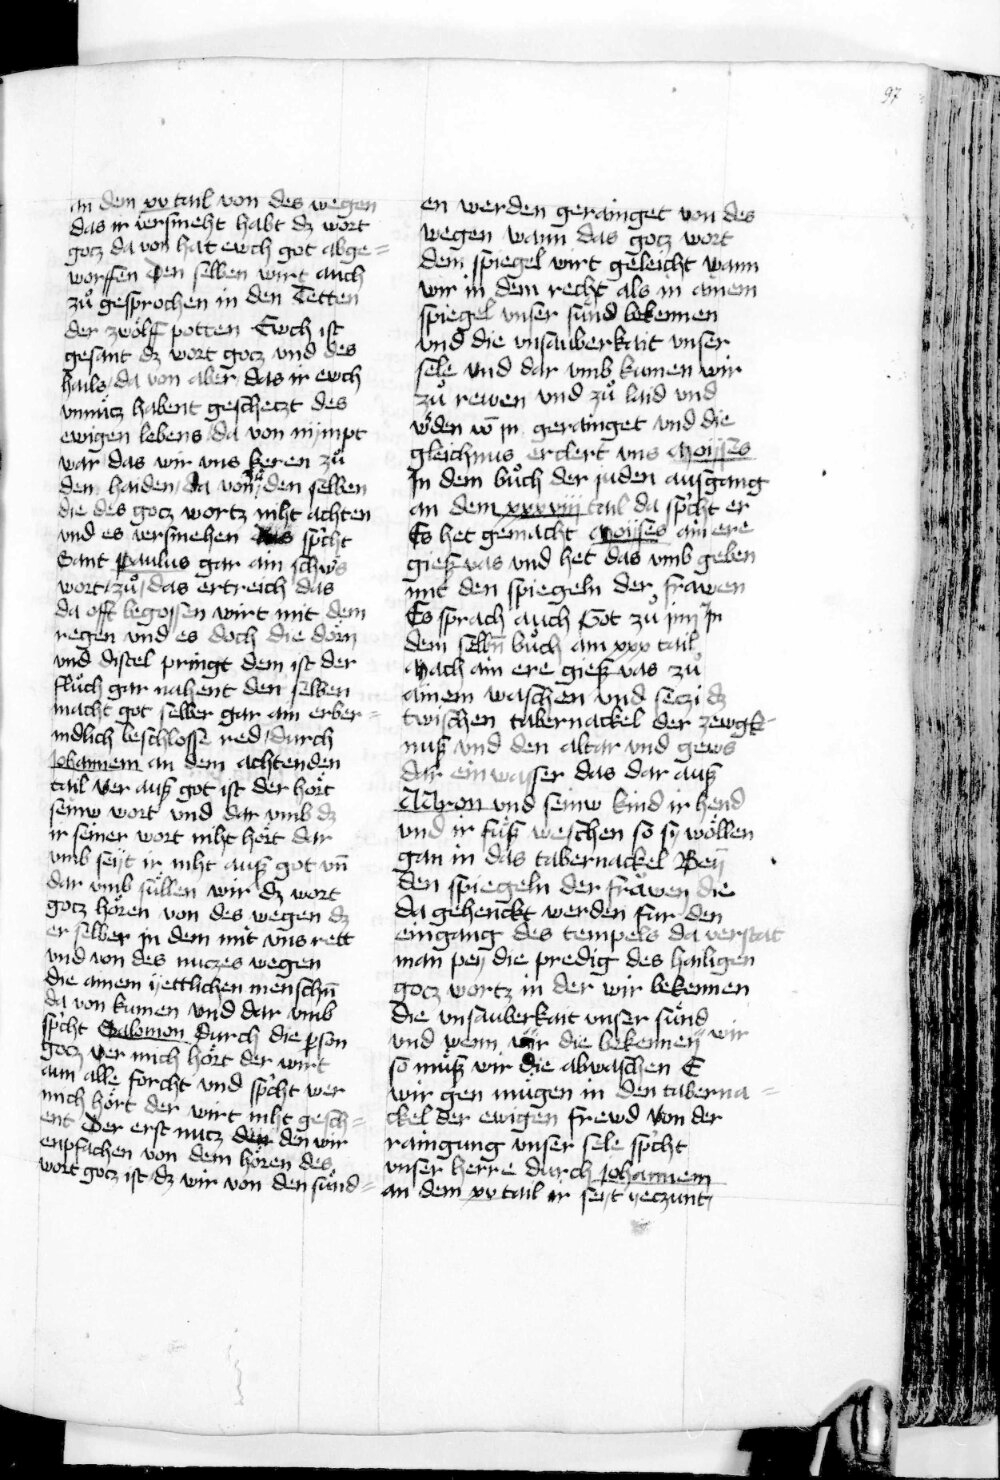 97
an dem xv tail von des wegen
das ir versmeht habt dz wort
gotz da von hat ewch got abge=
worffen Den selben wirt auch
zů gesprochen in den Tetten
der zwölff potten Ewch ist
gesant dz wort gotz vnd des
hails / da von aber / das ir ewch
vnnücz habent geschetzt des
ewigen lebens / da von nympt
war das wir vns keren zů
den haiden / da von / den selben
die des gotz wortz niht achten
vnd es versmehen spͤcht
Sant Paulus gar ain schwͤs
wort / zů / das ertreich das
da offt begossen wirt mit dem
regen vnd es doch die dörn
vnd distel pringt dem ist der
flůch gar nahent den selben
macht got selber gar ain erber=
mdlich beschlosse red / durch
Johannem an dem achtenden
tail Wer auß got ist der hört
seinw wort vnd dar vmb dz
ir seiner wort niht hört dar
vmb seyt ir niht auß got vn̄
dar vmb süllen wir dz wort
gotz hören von des wegen dz
er selber in dem mit vns rett
vnd von des nuczes wegen
die ainem yettlichen menschn̄
da von kumen vnd dar vmb
spͤcht Salomon durch die pson
gotz Wer mich hört der wirt
aun alle forcht vnd spͤcht wer
mich hört der wirt niht gesch=
ent Der erst nucz den wir
enpfachen von dem hören des
wort gotz ist / dz wir von den sünd=
en werden gerainget von des
wegen wann das gotz wort
dem spiegel wirt geleicht wann
wir in dem recht als in ainem
spiegel vnser sünd bekennen
vnd die vnsauberkait vnser
sele vnd dar vmb kumen wir
zů rewen vnd zů laid vnd
wͤden vō jn gerainget vnd die
gleichnus erclert vns Moyses
In dem bůch der juden ausgang
an dem xxxviij tail da spͤcht er
Es het gemacht Moyses ain ere
gieß vas vnd het das vmb geben
mit den spiegeln der frawen
Es sprach auch Got zů jm In
dem selbn̄ bůch am xxx tail
Mach ain ere gieß vas zů
ainem waschen vnd seczi dz
twischen tabernackel der zewgk-
nuß vnd den altar vnd gews
dar ein wasser das dar auß
Aaron vnd seinw kind ir hend
vnd ir füß weschen so sy wöllen
gan in das tabernackel Bey
den spiegeln der frawen die
da gehenckt werden für den
eingang des tempels da verstat
man pey die predig des hailigen
gotz wortz in der wir bekennen
die vnsauberkait vnser sünd
vnd wenn wir die bekennen wir
so müß wir die abwaschen E
wir gen mügen in den taberna=
ckel der ewigen frewd Von der
raingung vnser sele spͤcht
vnser herre durch Johannem
an dem xv tail ir seyt yeczunt